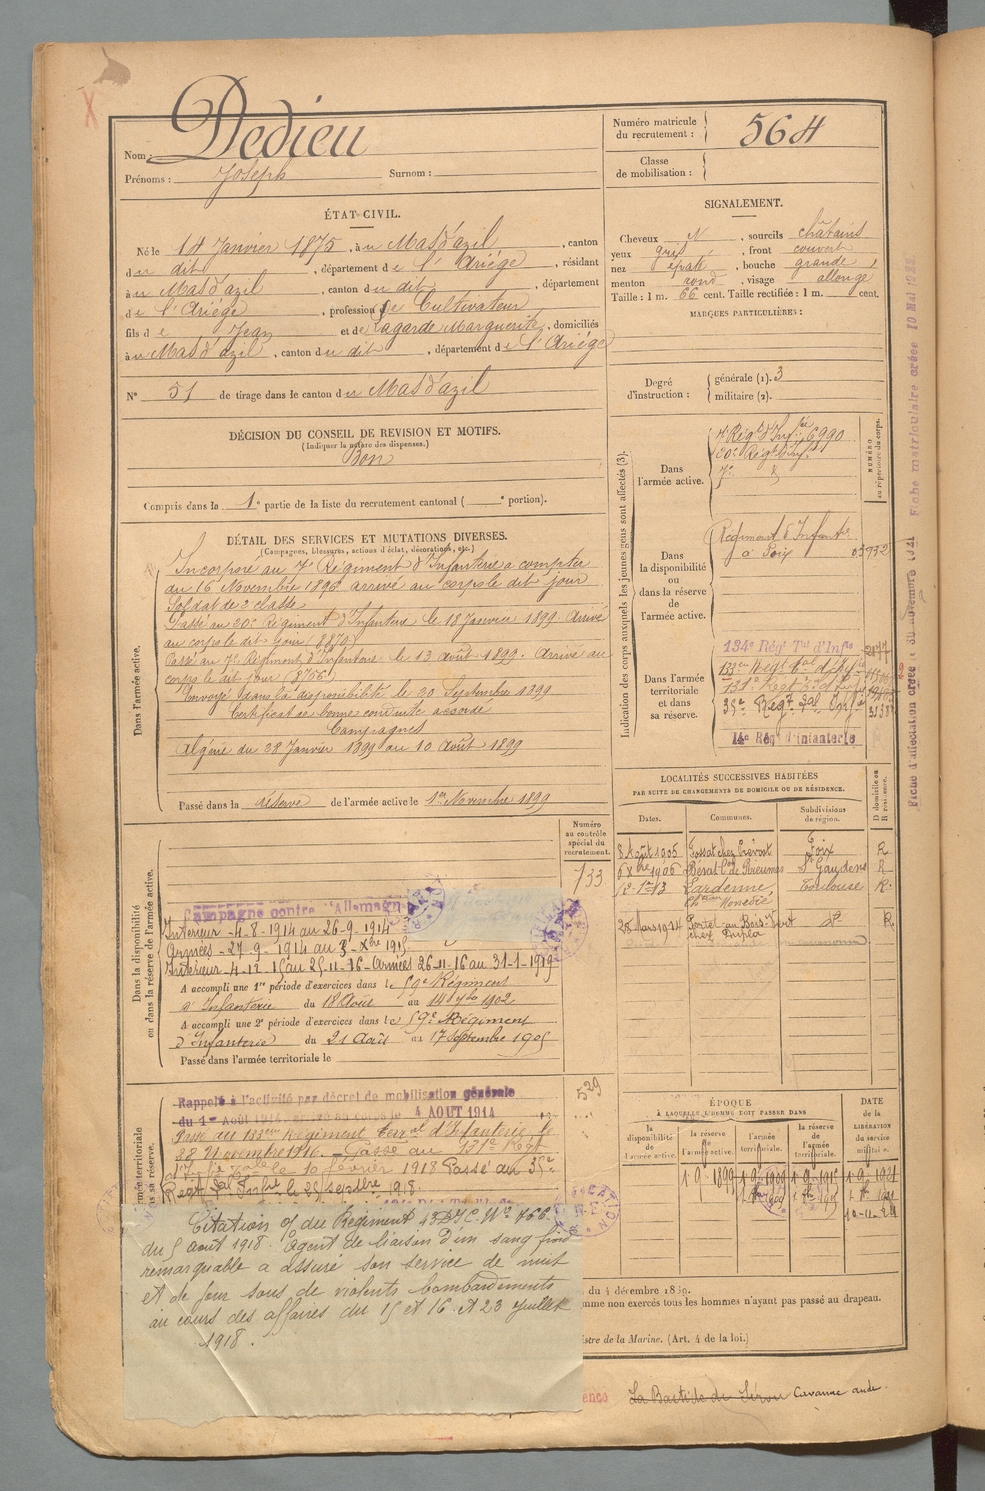 Nom : Dedieu
Prénoms : Joseph Surnom :
Numéro matricule du recrutement : 564
Classe de mobilisation :
ÉTAT CIVIL.
Né le 14 Janvier 1875, à u Mas d'azil, canton
d u dit, département d e l' Ariége, résidant
à u Mas d'azil, canton d u dit, département
d e l'Ariége, profession de Cultivateur
fils d e Jean et de Lagarde Marguerite, domiciliés
à u Mas d'azil, canton d u dit, département d e l'Ariége
N° 51 de tirage dans le canton d u Mas d'azil
DÉCISION DU CONSEIL DE REVISION ET MOTIFS.
(Indiquer la nature des dispenses.)
Bon
Compris dans la 1e partie de la liste du recrutement cantonal ( e portion).
SIGNALEMENT.
Cheveux N, sourcils châtains
yeux gris, front couvert
nez épaté, bouche grande,
menton rond, visage allongé
Taille : 1 m. 66 cent. Taille rectifiée : 1 m. cent.
MARQUES PARTICULIÈRES :
Degré d'instruction : générale (1). 3
militaire (2).
DÉTAIL DES SERVICES ET MUTATIONS DIVERSES.
(Campagnes, blessures, actions d'éclat, décorations, etc.)
Dans l'armée active.
Incorporé au 7e Régiment d'Infanterie a compter
du 16 Novembre 1896 arrivé au corps le dit jour
Soldat de 2e classe
Passé au 20e Régiment d'Infanterie le 18 Janvier 1899 Arrivé
au corps le dit jour
Passé au 7e Régiment d'Infanterie le 13 Août 1899. Arrivé au
corps le dit jour
Envoyé dans la disponibilité le 20 Septembre 1899
Certificat de bonne conduite accordé
Campagnes
Algérie du 28 Janvier 1899 au 10 Août 1899
Passé dans la réserve de l'armée active le 1er Novembre 1899
Indication des corps auxquels les jeunes gens sont affectés (3).
NUMÉRO au répertoire du corps.
Dans l'armée active.
7e Régt d'Infrie 6990
20e Régt Inf.
7e
Dans la disponibilité ou dans la réserve de l'armée active.
Régiment d'Infantie
à Foix 03932
Dans l'armée territoriale et dans sa réserve.
134e Régt Tal d'Infie
133e Régt tal d'Infie
131e Régt
35e Régt Tal
14e Régt d'infanterie
Fiche d'affectation créée le 30 novembre 1921 Fiche matriculaire créée 10 Mai 1922.
Dans la disponibilité ou dans la réserve de l'armée active.
Numéro au contrôle spécial du recrutement.
733
Campagne contre l'Allemagne
Intérieur -4-8-1914 au 26-9-1914
Armées -27-9-1914 au 3-Xbre 1915
Intérieur -4-12-15 au 25-11-16 -Armées 26-11-16 au 31-1-1919
A accompli une 1re période d'exercices dans le 59e Régiment
d'Infanterie du 18 Août au 14 7bre 1902
A accompli une 2e période d'exercices dans le 59e Régiment
d'Infanterie du 21 Août au 17 Septembre 1905
Passé dans l'armée territoriale le
LOCALITÉS SUCCESSIVES HABITÉES
PAR SUITE DE CHANGEMENTS DE DOMICILE OU DE RÉSIDENCE.
Dates. Communes. Subdivisions de région. D domicile ou R résidence.
8 Août 1905 Fossat chez Prévost Foix R
1906 St Gaudens R
Lardenne, Toulouse R.
28 Mars 1914 Portel-au Bois-Vert R
529
Rappelé à l'activité par décret de mobilisation générale
du 1er Août 1914, arrivé au corps le 4 AOUT 1914
Passé au 133eme Régiment terral d'Infanterie le
28 Novembre 1916. - Passé au 131e Régt
le 10 février 1918 Passé au 35e
Régt tal Infrie le 25 septbre 1918.
Citation of du Régiment 43 D.I.C. No 766.
du 5 août 1918. Agent de liaison d'un sang froid
remarquable a assuré son service de nuit
et de jour sous de violents bombardements
au cours des affaires du 15 et 16 et 23 Juillet
1918.
ÉPOQUE
À LAQUELLE L'HOMME DOIT PASSER DANS
la disponibilité de l'armée active. la réserve de l'armée active. l'armée territoriale. la réserve de l'armée territoriale.
DATE de la LIBÉRATION du service militaire.
1 9 1899 1 9 1909 1 9 1915 1 9 1921
10-11-24
du 4 décembre 1889.
mme non exercés tous les hommes n'ayant pas passé au drapeau.
istre de la Marine. (Art. 4 de la loi.)
ence La Bastide de Sérou Cavanac aude.